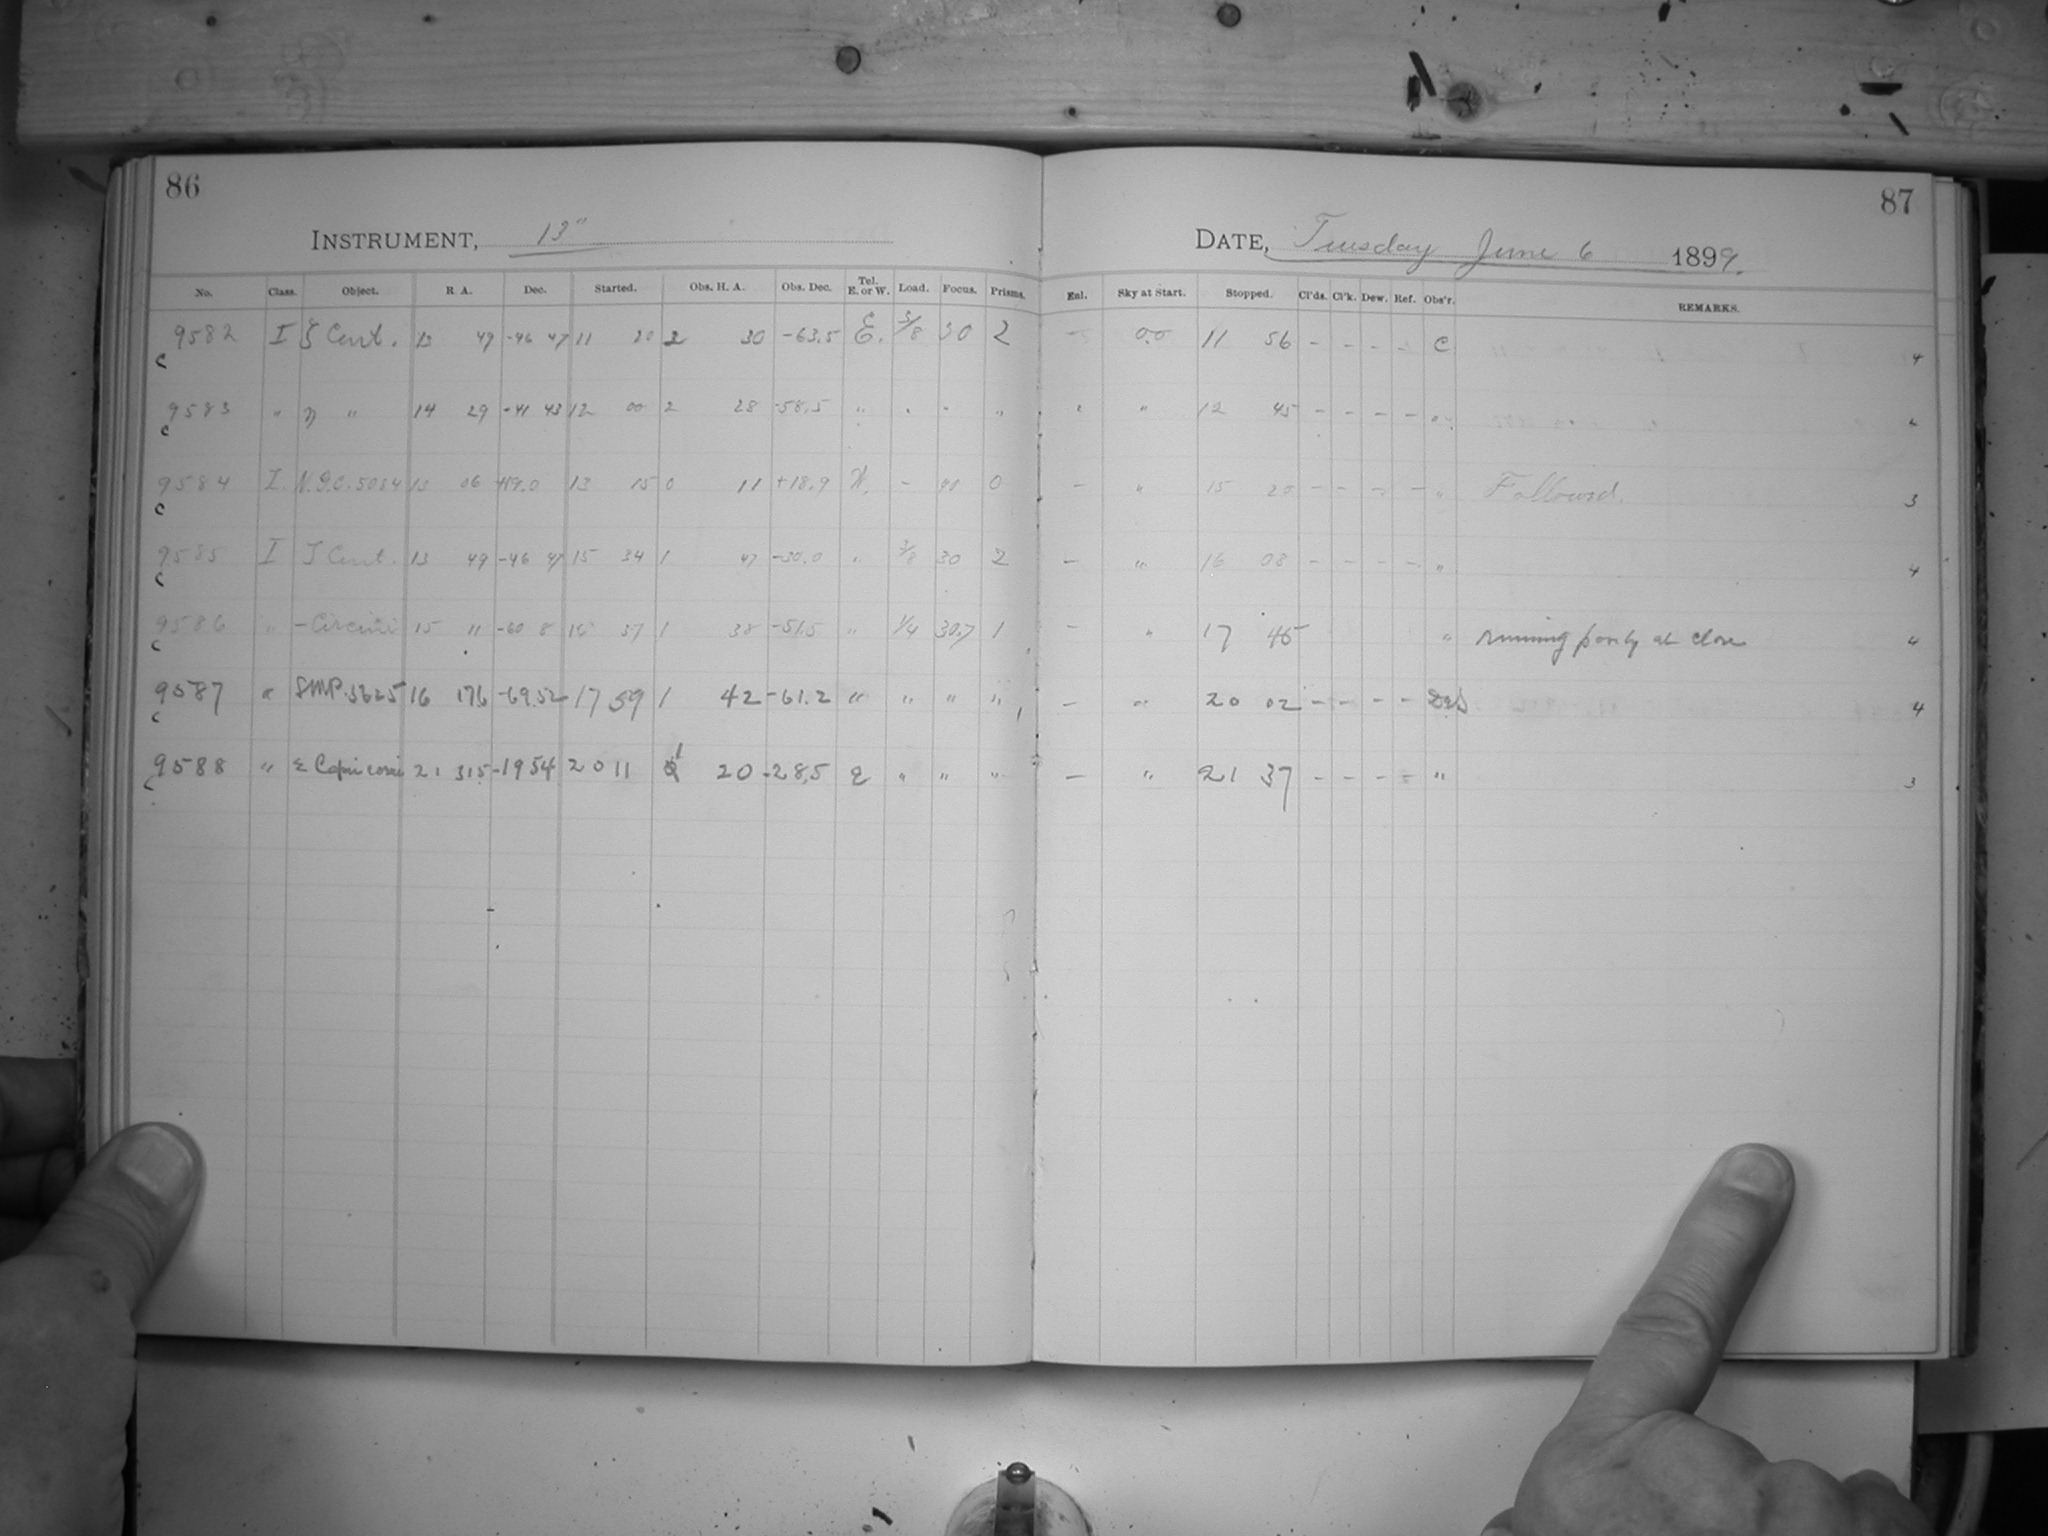 86
87
INSTRUMENT, 13"
DATE, Tuesday June 6 1899.
No. Class. Object. R A. Dec. Started. Obs. H. A. Obs. Dec. Tel. E. or W. Load. Focus. Prisms. Enl. Sky at Start. Stopped. Cl'ds. Cl'k. Dew. Ref. Obs'r. REMARKS.
9582 I ζ Cent. 13 49 -46 47 11 20 2 30 -63.5 E. 3/8 30 2 - 0.0 11 56 - - - - C 4
c
9583 " η " 14 29 -41 43 12 00 2 28 -58.5 " " " " " " 12 45 - - - - "
c
9584 I. N.G.C. 5024 13 06 13 15 0 11 +18.9 W. - 0 - " 15 20 - - - - " Followed. 3
c
9585 I ζ Cent. 13 49 -46 47 15 34 1 47 -30.0 " 3/8 30 2 - " 16 08 - - - - " 4
c
9586 " - Circini 15 " -60 8 37 1 38 -51.5 " 1/4 30.7 1 - " 17 45 " running poorly at close 4
c
9587 " SMP. 16 176 -69.52 17 59 1 42 -61.2 " " " " - " 20 02 - - - - 4
c
9588 " ε Capricorni 21 315 -1954 20 11 1 20 -28.5 E " " " - " 21 37 - - - - " 3
c